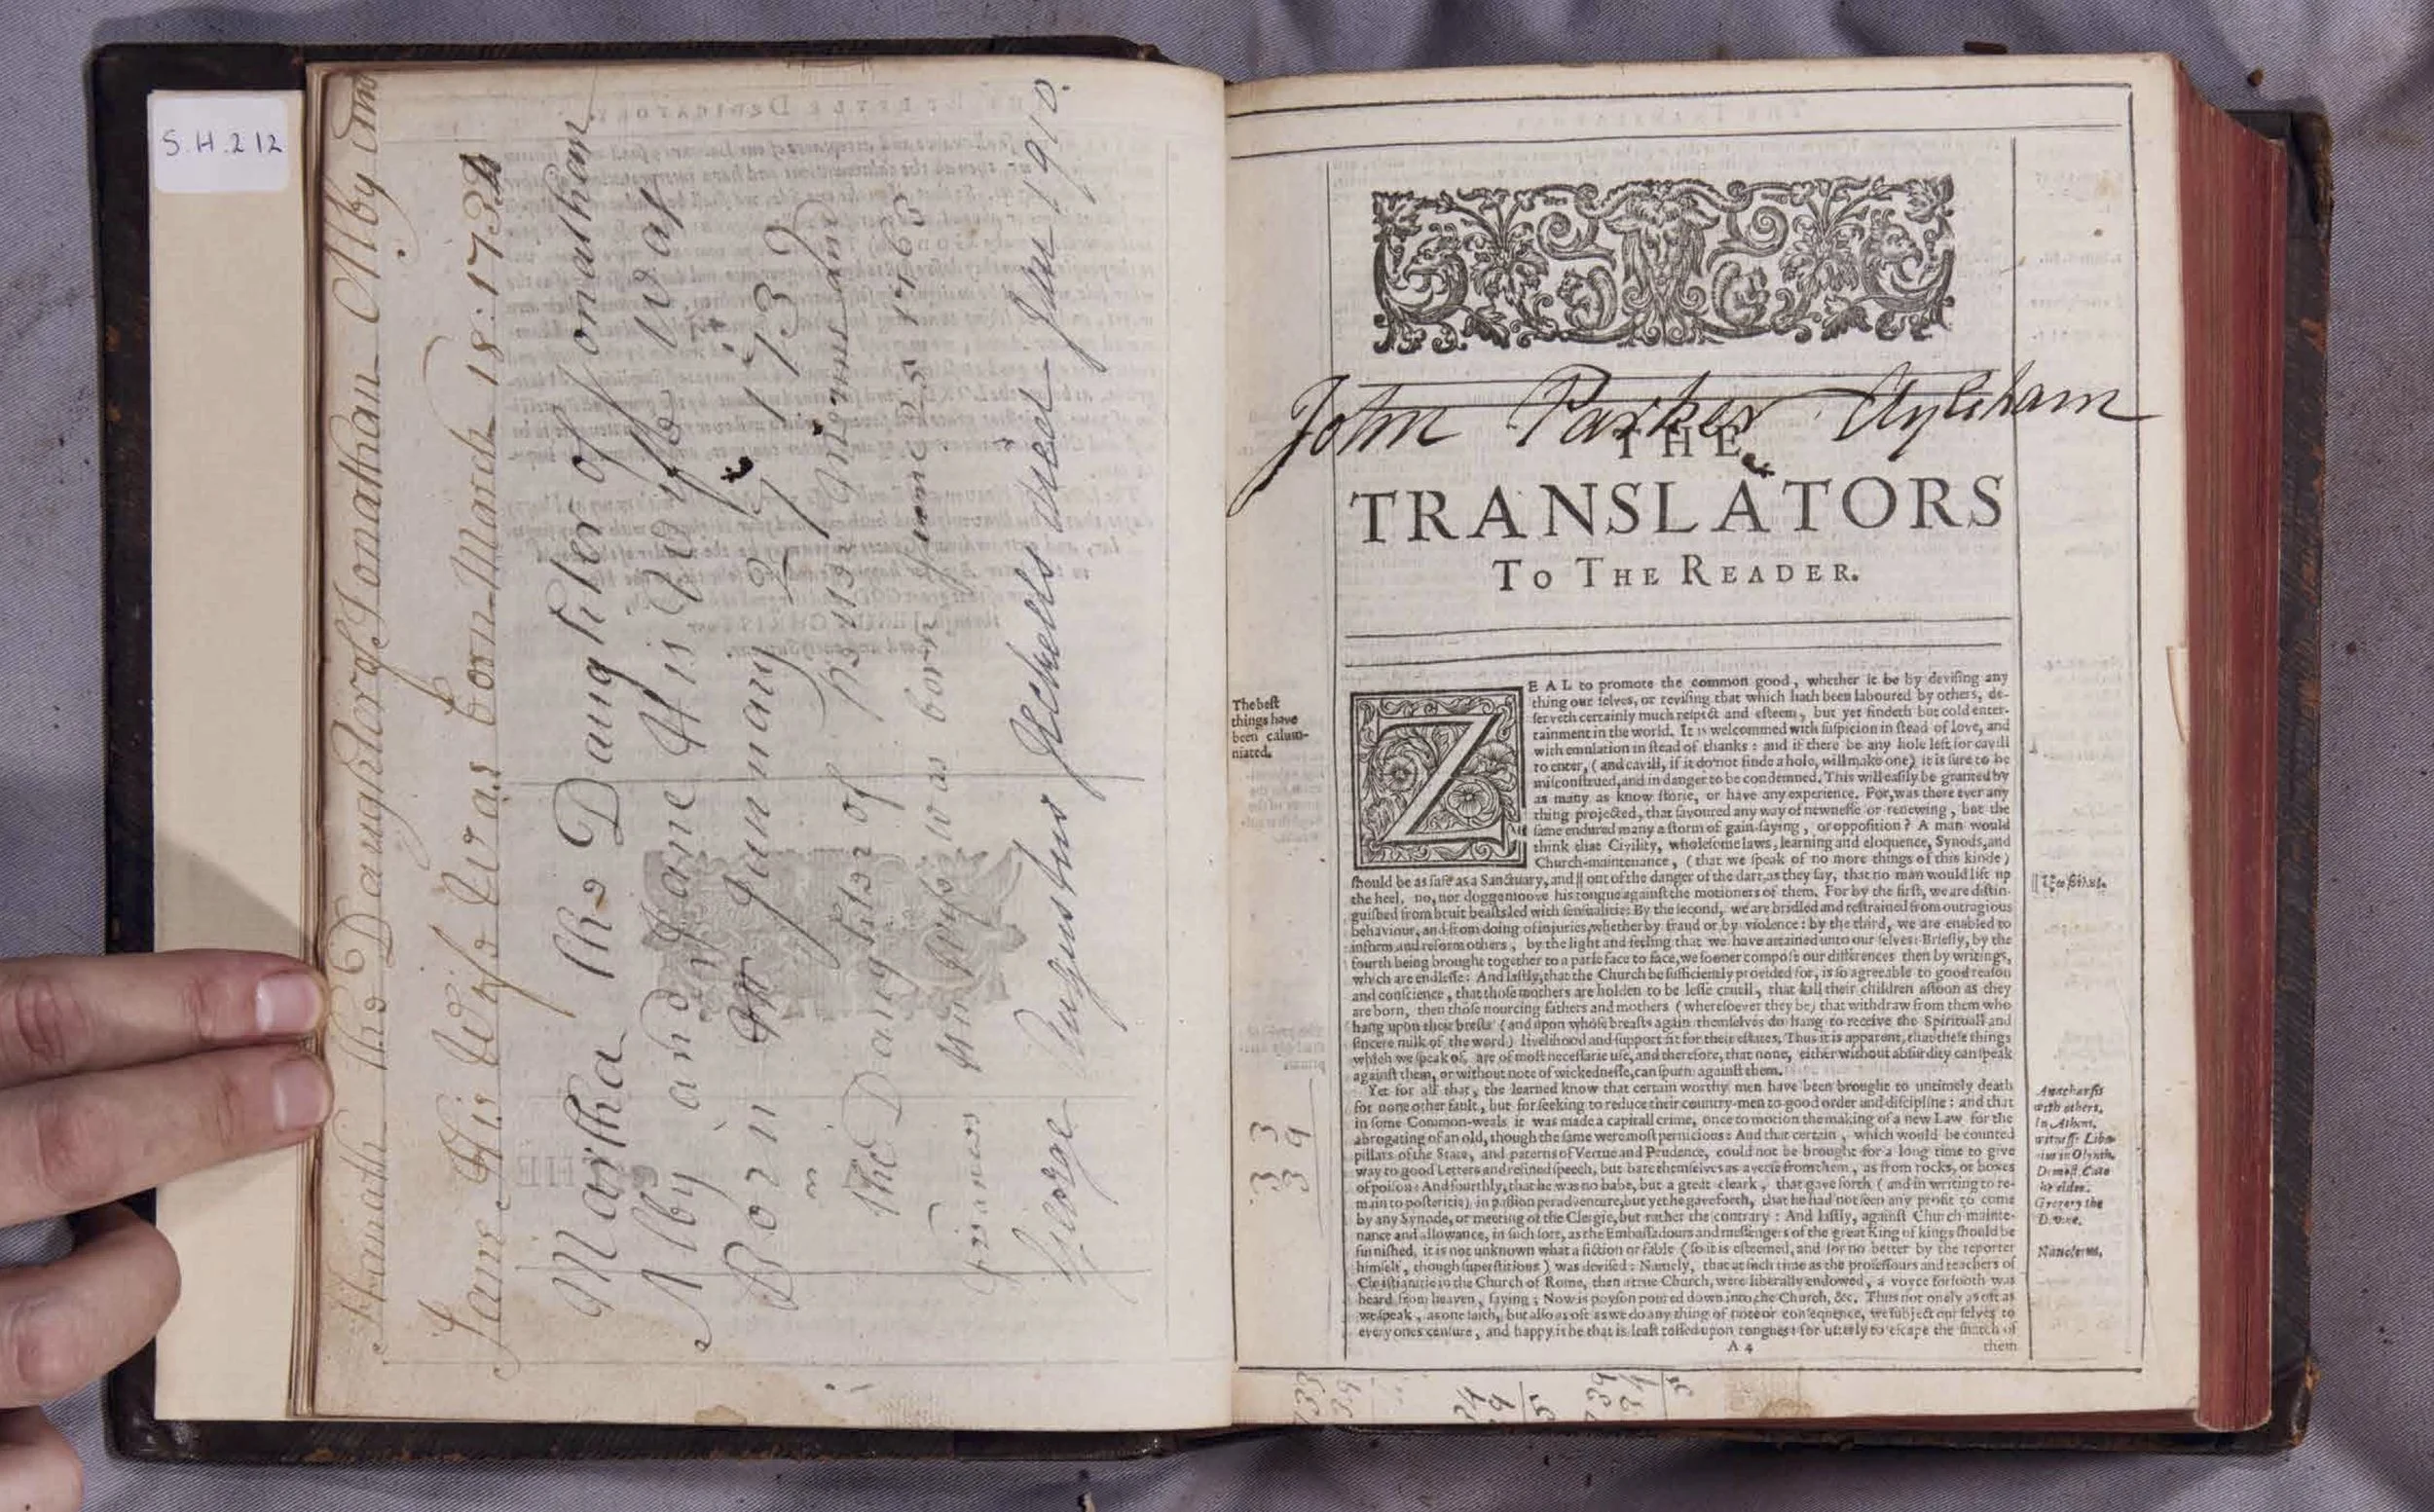 S.H.212
Hannah the Daughter of Jonathan Alby and
Jane His Wife Was born March 18: 173
Martha the Daughter of Jonathan
Alby and of Jane His Wife Was
Born January 1732
the Daughter of
was born June 1765
George Augustus Jechells Aured Jan 1910.
John Parker Aylsham
THE
TRANSLATORS
TO THE READER.
The best
things have
been calum-
niated.
ZEAL to promote the common good, whether it be by devising any
thing our selves, or revising that which hath been laboured by others, de-
serveth certainly much respect and esteem, but yet findeth but cold enter-
tainment in the world. It is welcommed with suspicion in stead of love, and
with emulation in stead of thanks: and if there be any hole left for cavill
to enter, (and cavill, if it do not finde a hole, will make one) it is sure to be
misconstrued, and in danger to be condemned. This will easily be granted by
as many as know storie, or have any experience. For, was there ever any
thing projected, that savoured any way of newnesse or renewing, but the
same endured many a storm of gain-saying, or opposition? A man would
think that Civility, wholesome laws, learning and eloquence, Synods, and
Church-maintenance, (that we speak of no more things of this kinde)
should be as safe as a Sanctuary, and || out of the danger of the dart, as they say, that no man would lift up
the heel, no, nor dogge moove his tongue against the motioners of them. For by the first, we are distin-
guished from bruit beasts led with sensualitie: By the second, we are bridled and restrained from outragious
behaviour, and from doing of injuries, whether by fraud or by violence: by the third, we are enabled to
inform and reform others, by the light and feeling that we have attained unto our selves: Briefly, by the
fourth being brought together to a parle face to face, we sooner compose our differences then by writings,
which are endlesse: And lastly, that the Church be sufficiently provided for, is so agreeable to good reason
and conscience, that those mothers are holden to be lesse cruell, that kill their children assoon as they
are born, then those nourcing fathers and mothers (wheresoever they be) that withdraw from them who
hang upon their brests (and upon whose breasts again themselves do hang to receive the Spirituall and
sincere milk of the word) livelihood and support fit for their estates. Thus it is apparent, that these things
which we speak of, are of most necessarie use, and therefore, that none, either without absurdity can speak
against them, or without note of wickednesse, can spurn against them.
Yet for all that, the learned know that certain worthy men have been brought to untimely death
for none other fault, but for seeking to reduce their country-men to good order and discipline: and that
in some Common-weals it was made a capitall crime, once to motion the making of a new Law for the
abrogating of an old, though the same were most pernicious: And that certain, which would be counted
pillars of the State, and paterns of Vertue and Prudence, could not be brought for a long time to give
way to good Letters and refined speech, but bare themselves as averse from them, as from rocks, or boxes
of poison: And fourthly, that he was no babe, but a great cleark, that gave forth (and in writing to re-
main to posteritie) in passion peradventure, but yet he gave forth, that he had not seen any profit to come
by any Synode, or meeting of the Clergie, but rather the contrary: And lastly, against Church-mainte-
nance and allowance, in such sort, as the Embassadours and messengers of the great King of kings should be
furnished, it is not unknown what a fiction or fable (so it is esteemed, and for no better by the reporter
himself, though superstitious) was devised: Namely, that at such time as the professours and teachers of
Christianitie in the Church of Rome, then a true Church, were liberally endowed, a voyce forsooth was
heard from heaven, saying; Now is poyson poured down into the Church, &c. Thus not onely as oft as
we speak, as one saith, but also as oft as we do any thing of note or consequence, we subject our selves to
every ones censure, and happy is he that is least tossed upon tongues: for utterly to escape the snatch of
A 4 them
Anacharsis
with others.
In Athens,
witness Liba-
nius in Olynth.
Demost. Cato
the elder.
Gregory the
Divine.
Nauclerus.
33
39